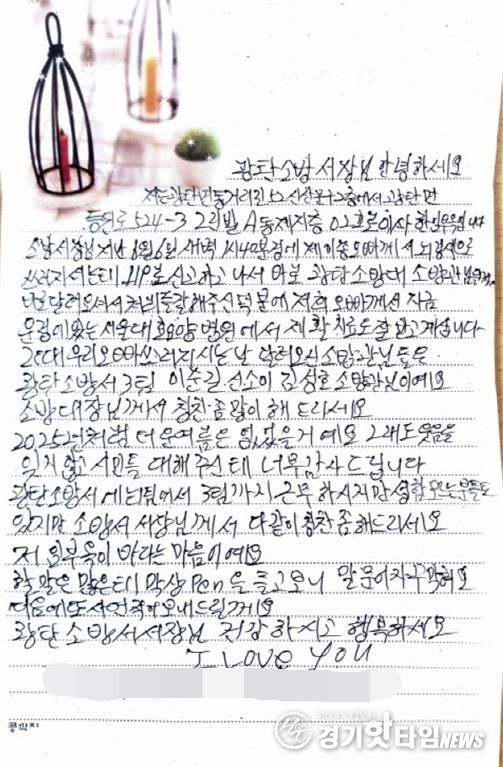 광탄소방서장님 안녕하세요
저는 광탄면 동거리 에서 광탄면
등원로 524-3 2리빌 A동 제지층 02호로 이사한
소방서장님 지난 8월 6일 새벽 1시40분경에 제 오빠께서 뇌경색으로
쓰러지셔는데 119로 신고하고 나서 바로 광탄소방대 소방관님
달려오셔서 처치를 잘해주신 덕분에 저희 오빠께선 지금
문경에 있는 서울대효요양병원에서 재활치료도 잘 받고 계십니다
그런대 우리오빠쓰러지시는 날 달려오신 소방관님들은
광탄소방서 3팀 이순길 선소이 김성호 소방관님이에요
소방대장님께서 칭찬좀 많이 해 드리세요
2025년처럼 더운여름은 없었을거에요 그래도 웃음을
잊지 않고 시민들 대해주신테 너무감사드립니다
광탄소방서에는 1팀에서 3팀까지 근무하시지만 쉬는분들도
있지만 소방서 서장님께서 다같이 칭찬좀해드리세요
저 의 부욱이 바라는 마음이에요
할 말은 많은티 막상 Pen을 들고보니 말문이 자꾸막혀요
다음에 또 사연 적어보내드릴게요
광탄소방서서장님 건강하시고 행복하세요
I LOVE YOU
콩깍지
경기핫타임NEWS